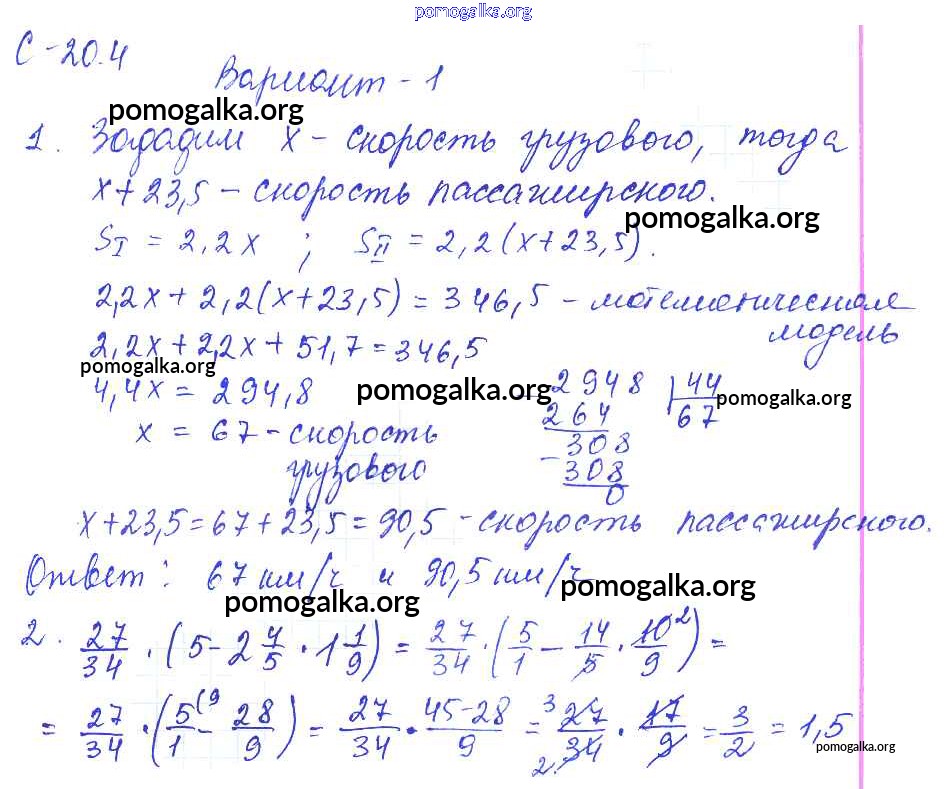 pomogalka.org
С-20.4
Вариант-1
pomogalka.org
1. Зададим x - скорость грузового, тогда
x+23,5 - скорость пассажирского.
pomogalka.org
S_I = 2,2x ; S_II = 2,2(x+23,5).
2,2x + 2,2(x+23,5) = 346,5 - математическая
модель
2,2x + 2,2x + 51,7 = 346,5
pomogalka.org
4,4x = 294,8
pomogalka.org
2948 | 44
264 67
pomogalka.org
x = 67 - скорость
грузового
- 308
308
0
x+23,5 = 67+23,5 = 90,5 - скорость пассажирского.
Ответ: 67 км/ч и 90,5 км/ч
pomogalka.org
pomogalka.org
2. 27/34 · (5 - 2 4/5 · 1 1/9) = 27/34 · (5/1 - 14/5 · 10²/9) =
= 27/34 · (5/1 (9 - 28/9) = 27/34 · 45-28/9 = ³27/₂34 · 17/9 = 3/2 = 1,5
pomogalka.org